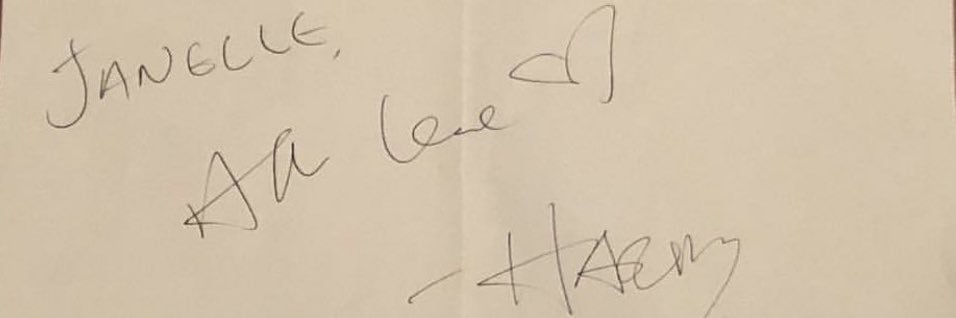 JANELLE,
All love
- HARRY